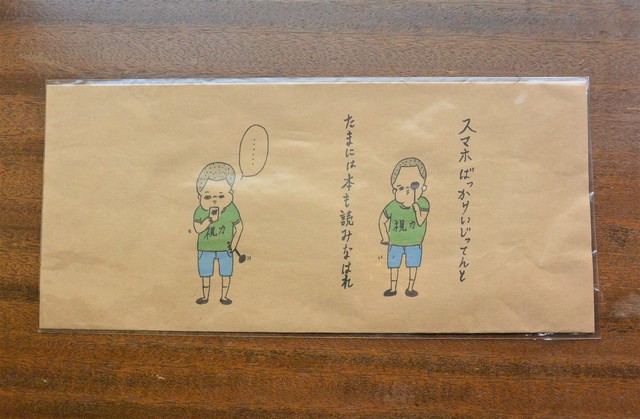 スマホばっかりいじってんと
視力
たまには本も読みなはれ
……
視力